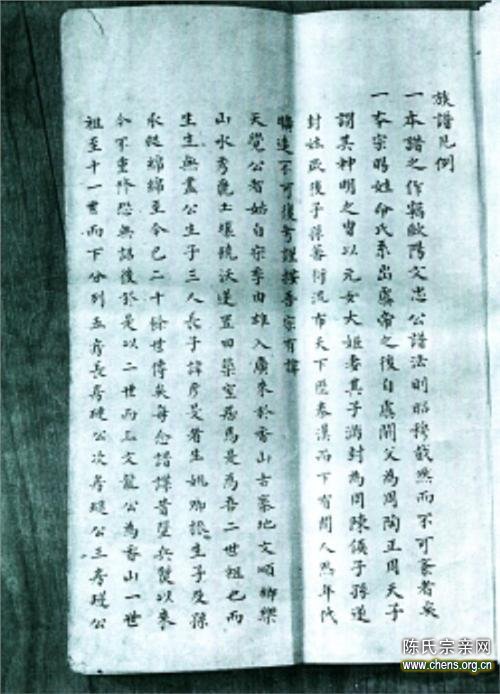 族譜凡例
一本譜之作竊歐陽文忠公譜法則昭穆截然而不可紊者矣
一本宗明姓分氏系出虞帝之後自虞閼父為周陶正周天子
謂其神明之胄以元女大姬妻其子滿封為周陳侯子孫遂
封姓厥後子孫蕃衍流布天下歷秦漢而下有聞人然年代
遠不可復考謹按吾宗有諱
天覺公者始自宗季由雄入廣來於香山古寨地文順鄉樂
山水秀麗土壤饒沃遂置田築室居焉是為吾二世祖也而
生主無盡公生子三人長子諱彥生子及孫
承延綿綿至今已二十餘世傳矣每念譜諜昔罹兵燹以來
今不重修恐無詔後於是以二世而三文龍公為香山一世
祖至十一世而下分列五房長房公次房公三房公
陈氏宗亲网
www.chens.org.cn